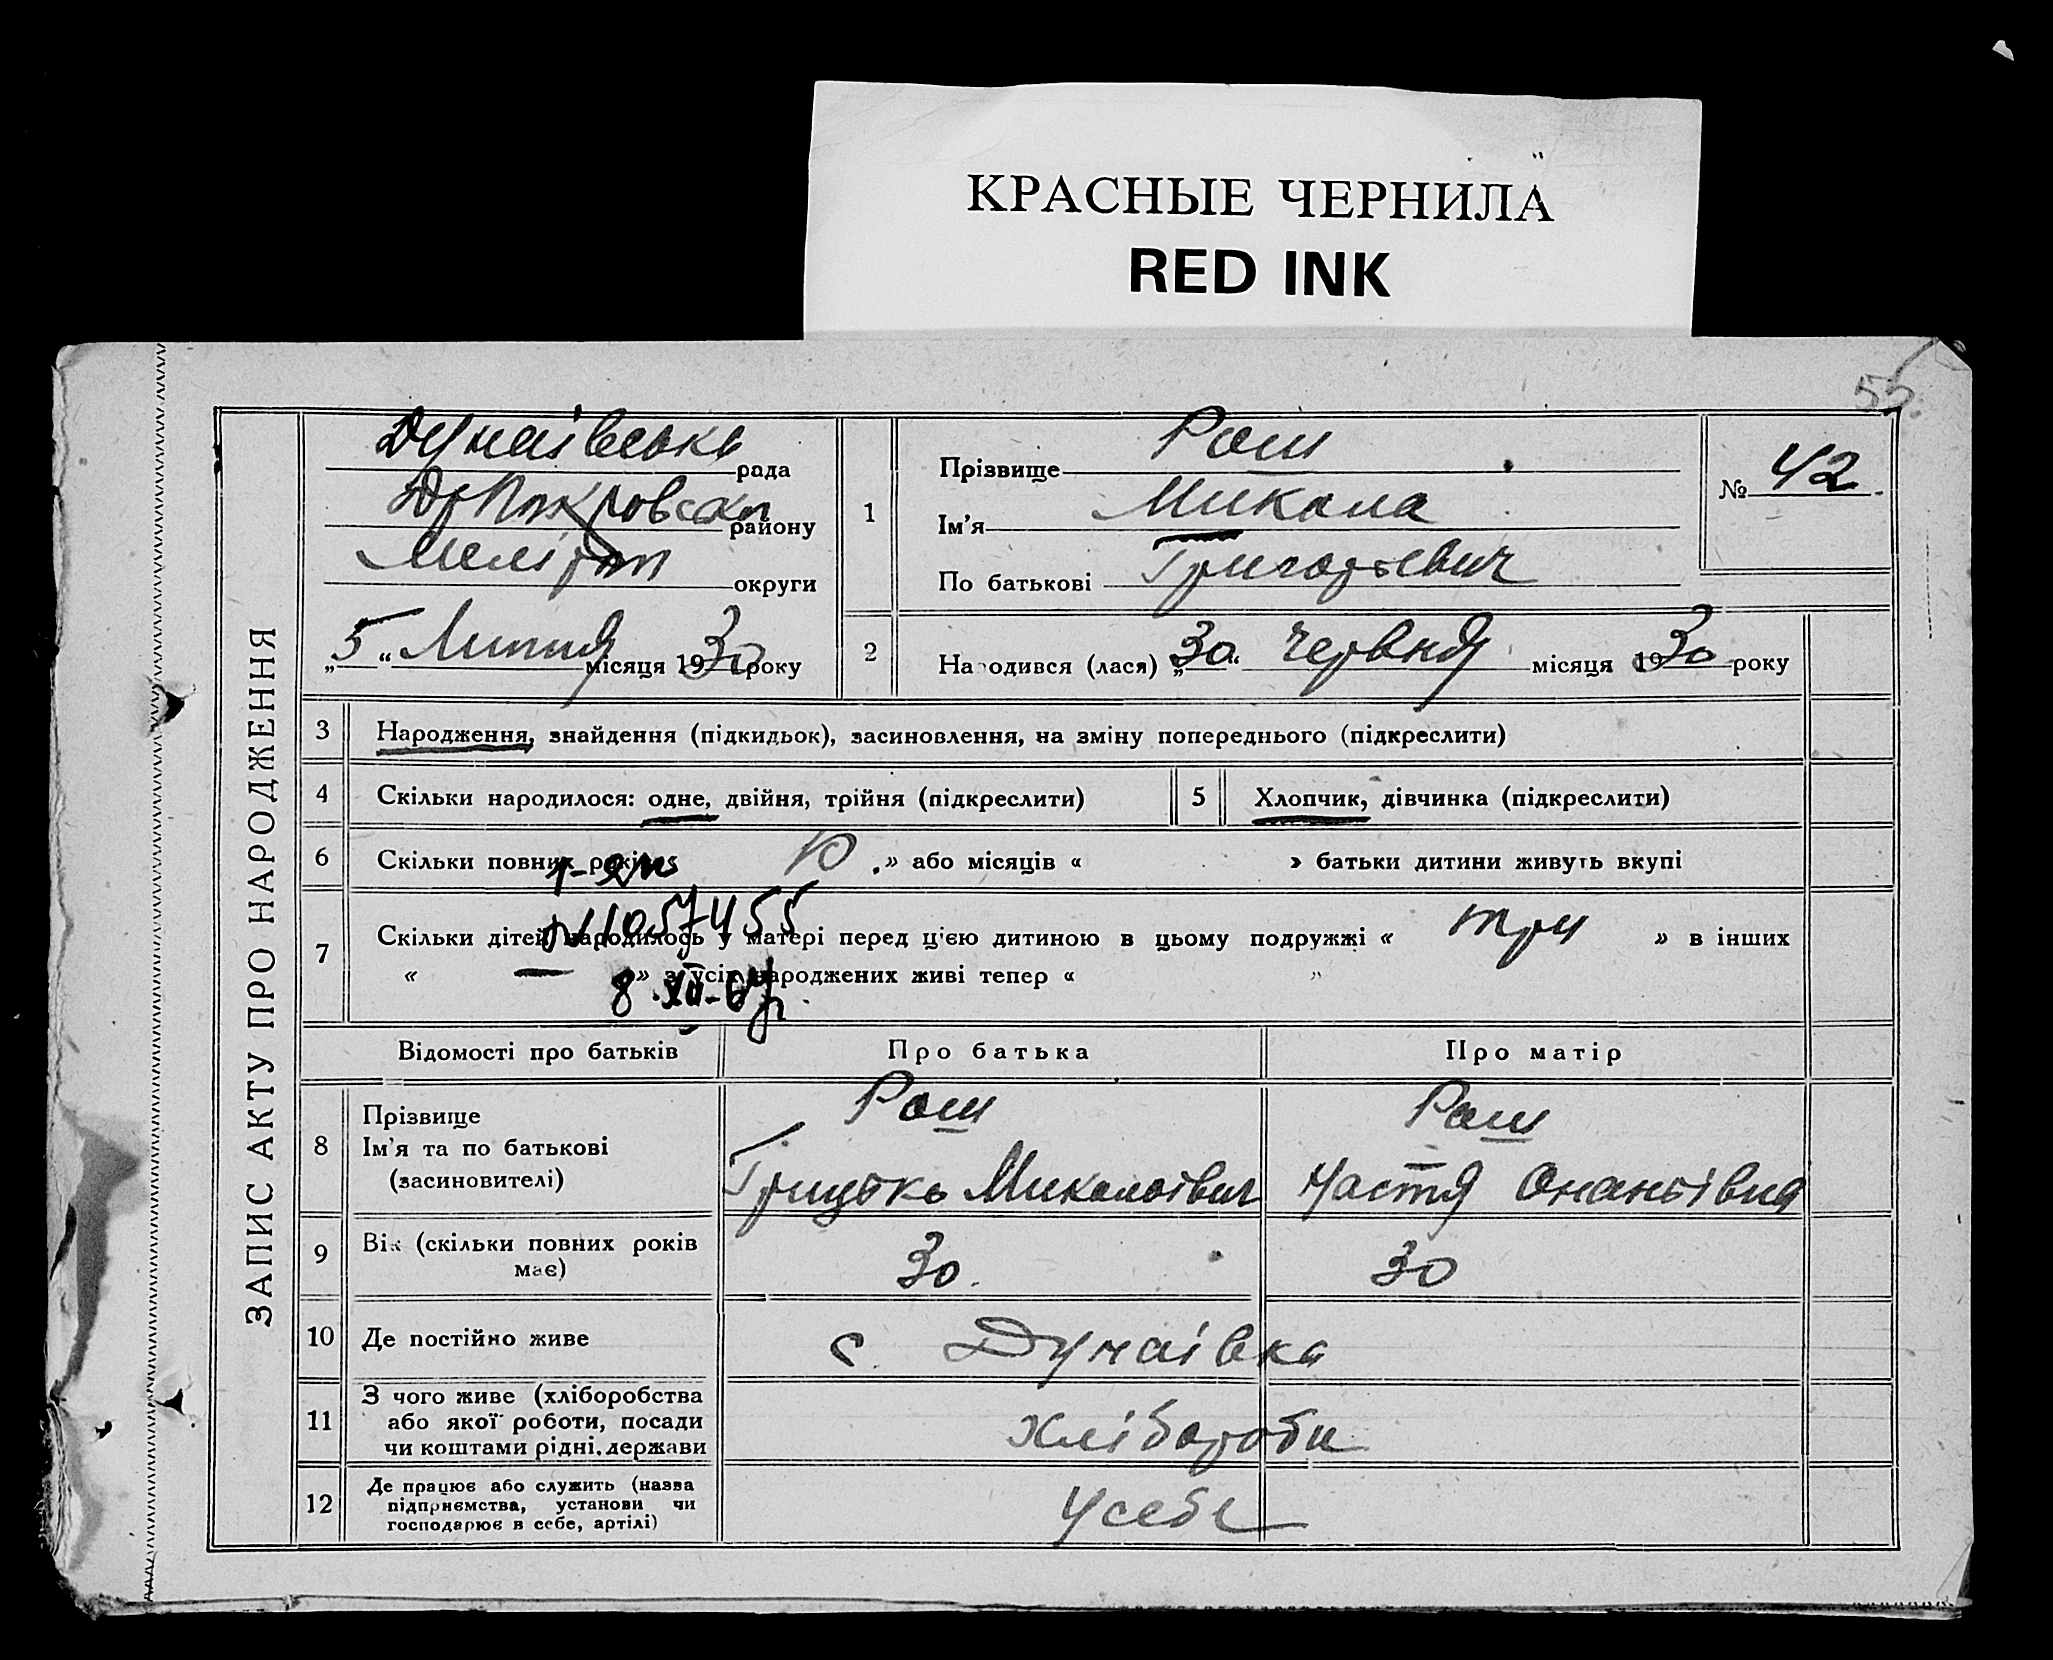 КРАСНЫЕ ЧЕРНИЛА
RED INK
55.
ЗАПИС АКТУ ПРО НАРОДЖЕННЯ
Дунаївсько рада
району
Мелітоп округи
„5“ Липня місяця 1930 року
1
Прізвище Раш
Ім'я Микола
По батькові Григорьевич
№ 42
2
Народився (лася) „30“ червня місяця 1930 року
3 Народження, знайдення (підкидьок), засиновлення, на зміну попереднього (підкреслити)
4 Скільки народилося: одне, двійня, трійня (підкреслити)
5 Хлопчик, дівчинка (підкреслити)
6 Скільки повних років 10 » або місяців « » батьки дитини живуть вкупі
№ 1057455
7 Скільки дітей народилось у матері перед цією дитиною в цьому подружжі « три » в інших
« — » з усіх народжених живі тепер « »
8.XII-67р.
Відомості про батьків Про батька Про матір
8
Прізвище
Ім'я та по батькові
(засиновителі)
Раш
Грицько Миколаївич
Раш
Настя Онаньівна
9 Вік (скільки повних років
має)
30. 30
10 Де постійно живе с. Дунаівка
11 З чого живе (хліборобства
або якої роботи, посади
чи коштами рідні, держави
хлібороби
12 Де працює або служить (назва
підприємства, установи чи
господарює в себе, артілі)
У себе